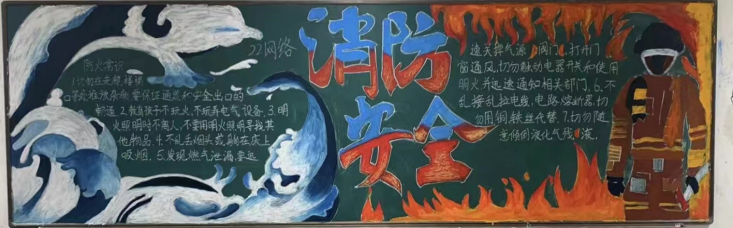 消防
安全
22网络
防火常识
1.切勿在走廊、楼梯
口等处堆放杂物,要保证通道和安全出口的
畅通.2.教育孩子不玩火,不玩弄电气设备.3.明
火照明时不离人,不要用明火照明寻找其
他物品.4.不乱丢烟头或躺在床上
吸烟.5.发现燃气泄漏,要迅
速关掉气源阀门,打开门
窗通风,切勿触动电器开关和使用
明火并迅速通知相关部门.6.不
乱接乱拉电线,电路熔断器切
勿用铜、铁丝代替.7.切勿随
意倾倒液化气残液.